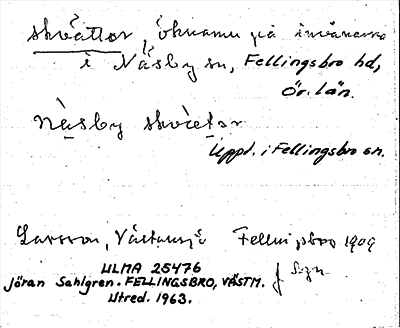 skvättor, öknamn på invånarna
i Näsby sn, Fellingsbro hd,
Ör. län.
Näsby
Uppt. i Fellingsbro sn.
Larsson, Fellingsbro 1909
ULMA 25476
Jöran Sahlgren. FELLINGSBRO, VÄSTM.
Utred. 1963.